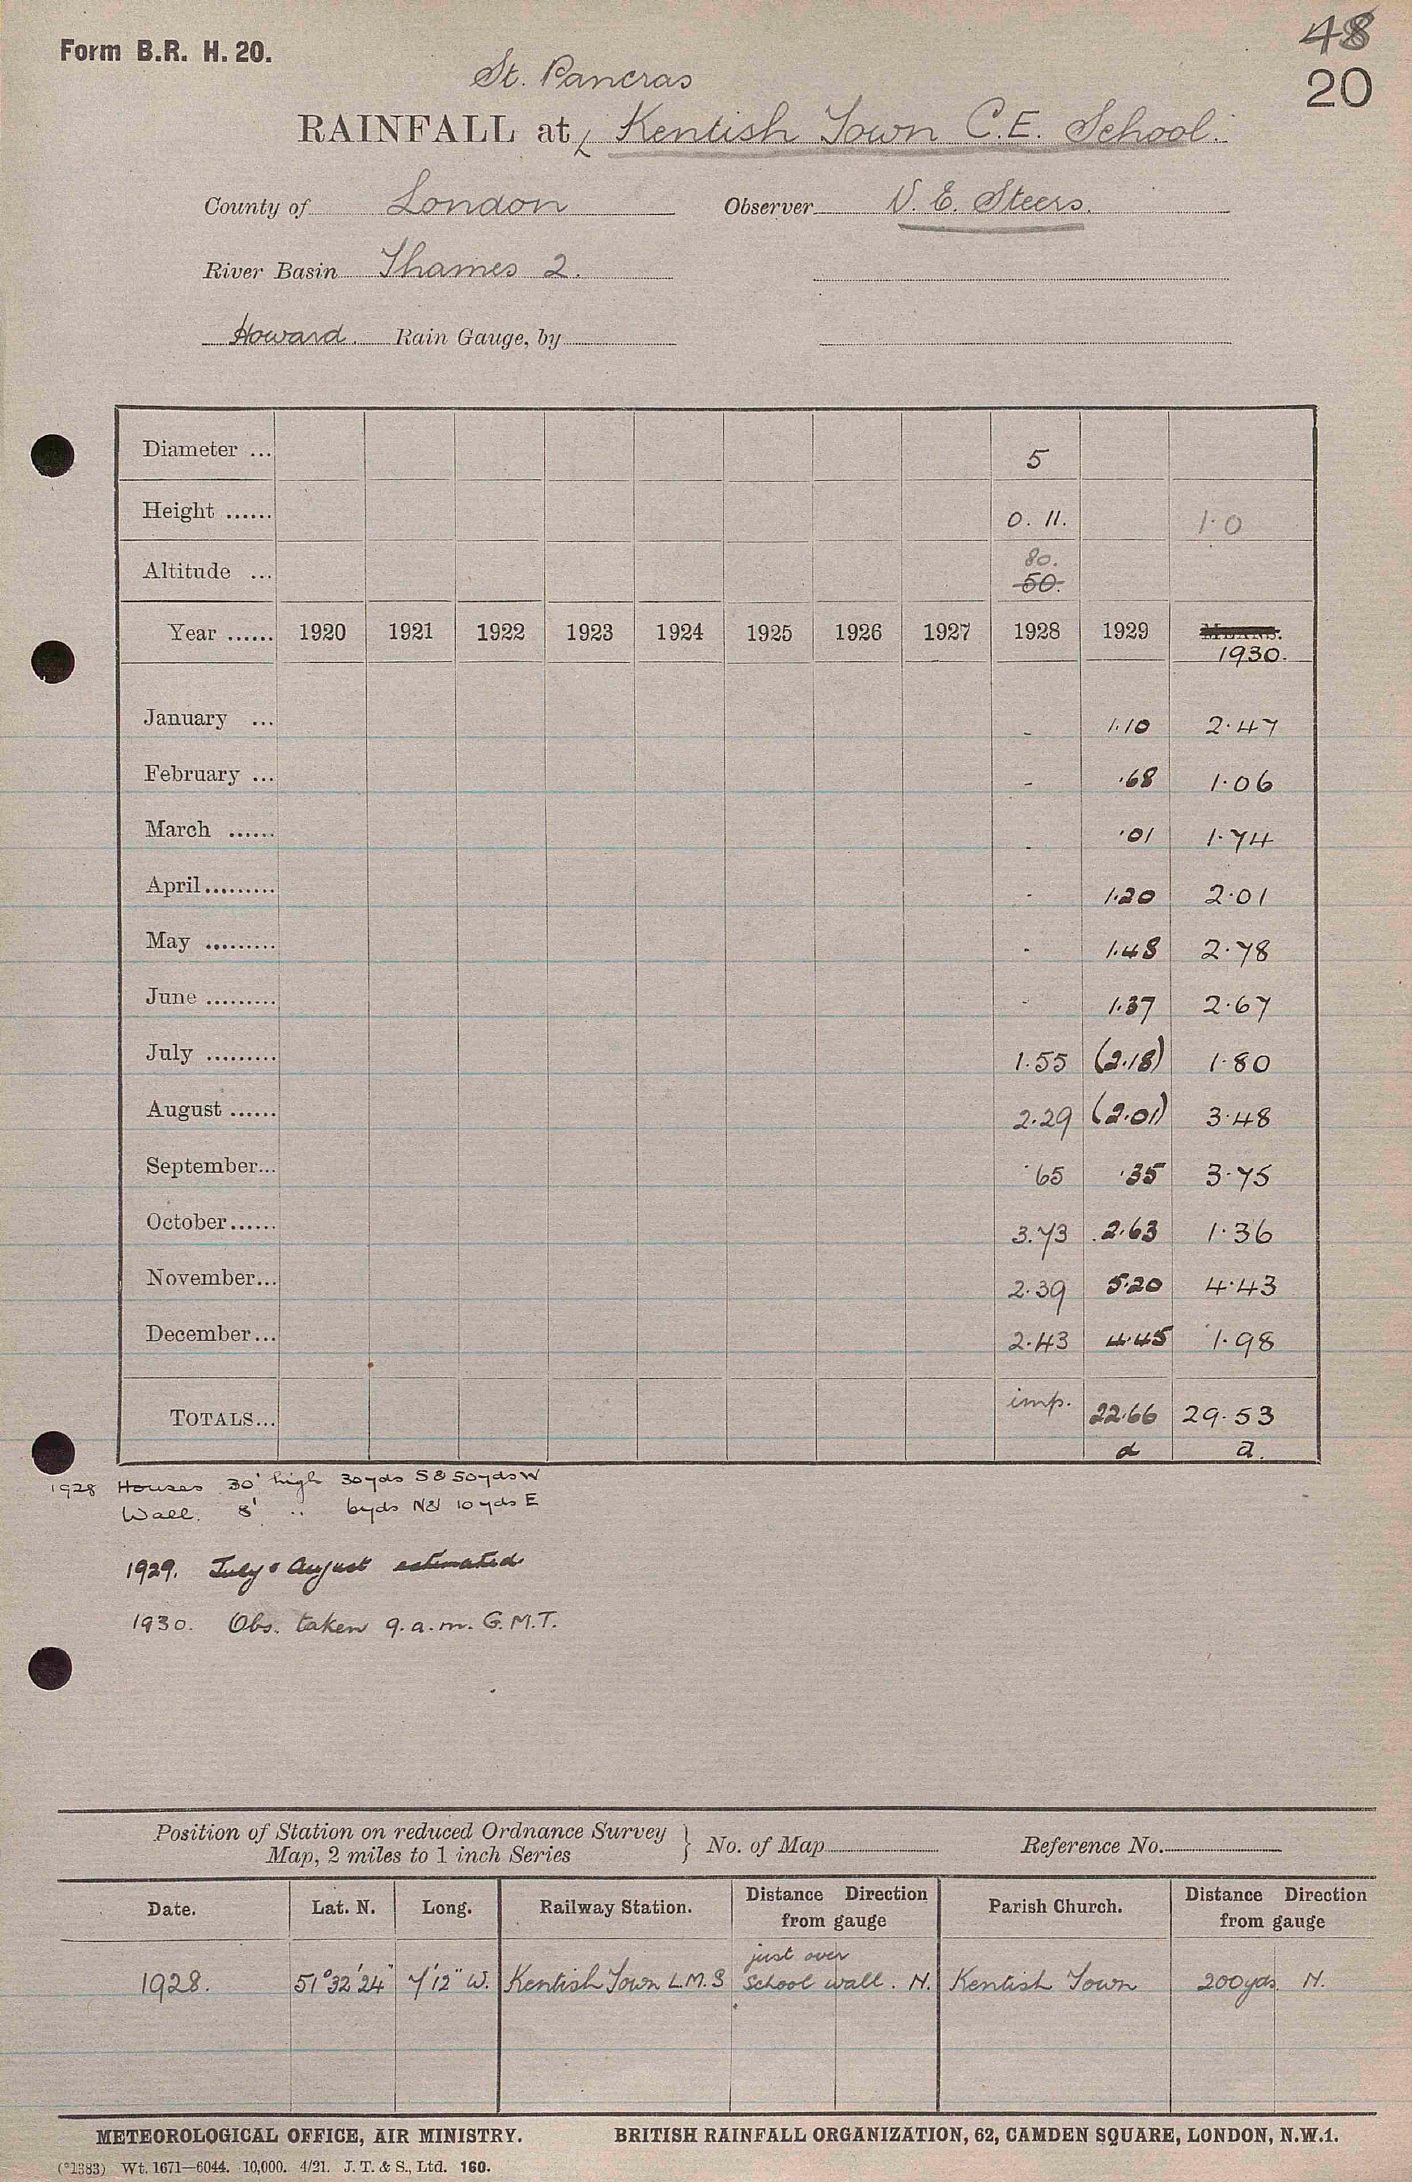 48
Form B.R. H. 20.
20
St. Pancras
RAINFALL at Kentish Town C.E. School.
County of London Observer V. E. Steers.
River Basin Thames 2.
Howard. Rain Gauge, by
Diameter ... 5
Height ...... 0. 11. 1.0
Altitude ... 80.
50.
Year ...... 1920 1921 1922 1923 1924 1925 1926 1927 1928 1929 MEANS.
1930.
January ... - 1.10 2.47
February ... - .68 1.06
March ...... - .01 1.74
April......... - 1.20 2.01
May ......... - 1.48 2.78
June ......... - 1.37 2.67
July ......... 1.55 (2.18) 1.80
August ...... 2.29 (2.01) 3.48
September... .65 .35 3.75
October...... 3.73 2.63 1.36
November... 2.39 5.20 4.43
December... 2.43 4.45 1.98
TOTALS... imp. 22.66 29.53
a a.
1928 Houses 30' high 30yds S & 50yds W
Wall. 8' .. 6yds N & 10yds E
1929. July & August estimated
1930. Obs. taken 9.a.m. G.M.T.
Position of Station on reduced Ordnance Survey
Map, 2 miles to 1 inch Series } No. of Map Reference No.
Date. Lat. N. Long. Railway Station. Distance Direction from gauge Parish Church. Distance Direction from gauge
just over
1928. 51°32'24" 7'12" W. Kentish Town L.M.S School wall. N. Kentish Town 200yds N.
METEOROLOGICAL OFFICE, AIR MINISTRY. BRITISH RAINFALL ORGANIZATION, 62, CAMDEN SQUARE, LONDON, N.W.1.
(*1383) Wt. 1671—6044. 10,000. 4/21. J. T. & S., Ltd. 160.